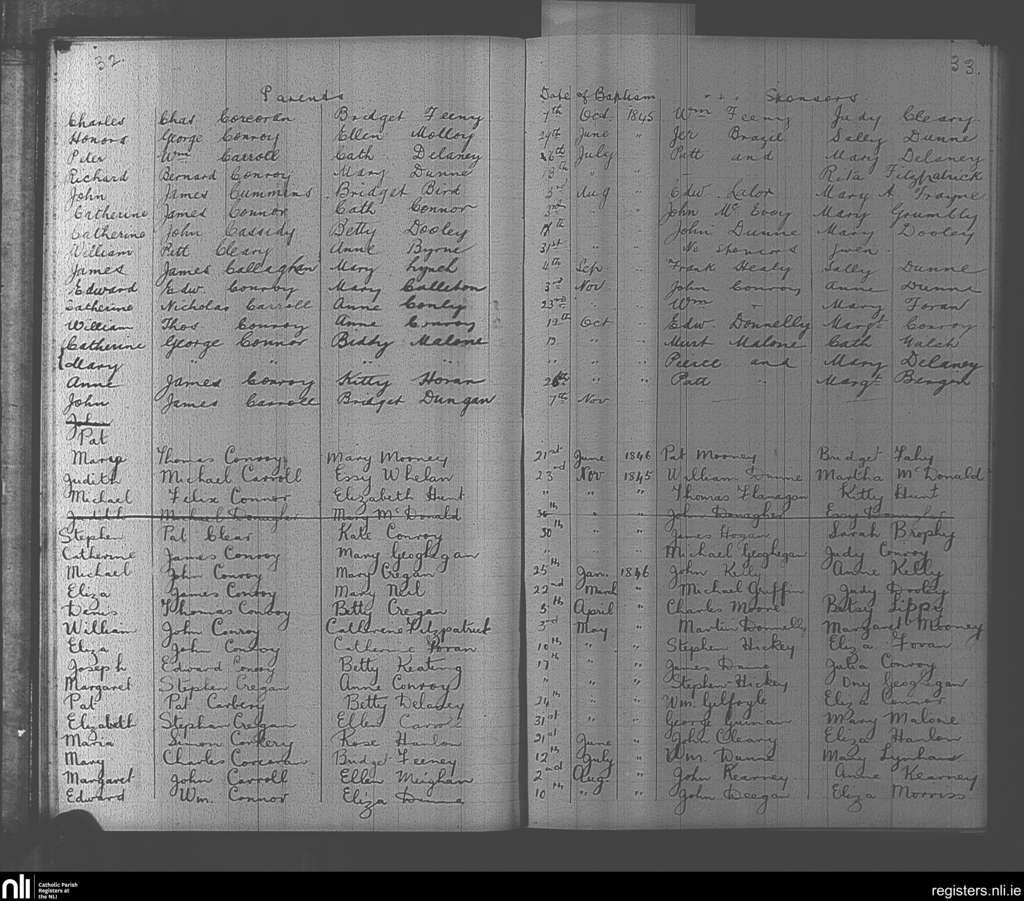 32. 33.
Parents Date of Baptism Sponsors
Charles Chas Corcoran Bridget Feeny 7th Oct. 1845 Wm Feeny Judy Cleary
Honora George Conroy Ellen Molloy 29th June " Jer Brazil Sally Dunne
Peter Wm Carroll Cath Delaney 26th July " Patt and Mary Delaney
Richard Bernard Conroy Mary Dunne " " Rita Fitzpatrick
John James Cummins Bridget Bird 3rd Aug " Edw. Lalor Mary A
Catherine James Connor Cath Connor 3rd " " John McEvoy Mary Grumbly
Catherine John Cassidy Betty Dooley " " John Dunne Mary Dooley
William Patt Cleary Anne Byrne 31st " " No sponsors given
James James Callaghan Mary Lynch 4th Sep " Frank Healy Sally Dunne
Edward Edw. Conroy Mary Culleton 3rd Nov John Conroy Anne Dunne
Catherine Nicholas Carroll Anne Conly 23rd " " Wm " Mary Foran
William Thos Conroy Anne Conroy 12th Oct " Edw. Donnelly Margt Conroy
Catherine George Connor Biddy Malone " " " Murt Malone Cath Walsh
Mary " " " " " " " Pierce and Mary Delaney
Anne James Conroy Kitty Horan 26th " " Patt " Margt Bergin
John James Carroll Bridget Dungan 7th Nov
John
Pat
Mary Thomas Conroy Mary Mooney 21st June 1846 Pat Mooney Bridget Fahy
Judith Michael Carroll Essy Whelan 23rd Nov 1845 William Dunne Martha McDonald
Michael Felix Connor Elizabeth Hunt " " " Thomas Flanagan Kitty Hunt
Judith Michael Donagher Mary McDonald 30th " " John Donagher
Stephen Pat Clear Kate Conroy 30th " " James Hogan Sarah Brophy
Catherine James Conroy Mary Geoghegan " " " Michael Geoghegan Judy Conroy
Michael John Conroy Mary Cregan 25th Jan. 1846 John Kelly Anne Kelly
Eliza James Conroy Mary Neil 22nd March " Michael Griffin Judy Dooley
Denis Thomas Conroy Betty Cregan 5th April " Charles Moore Betsy Lipps
William John Conroy Catherine Fitzpatrick 3rd May " Martin Donnelly Margaret Mooney
Eliza John Conroy Catherine Foran 10th " " Stephen Hickey Eliza Foran
Joseph Edward Conroy Betty Keating 17th " " James Dunne Julia Conroy
Margaret Stephen Cregan Anne Conroy " " " Stephen Hickey Ony Geoghegan
Pat Pat Carbery Betty Delaney 24th " " Wm. Gilfoyle Eliza Connor
Elizabeth Stephen Cregan Ellen Carroll 31st " " George Guinan Mary Malone
Maria Simon Conkery Rose Hanlon 21st June " John Cleary Eliza Hanlon
Mary Charles Corcoran Bridget Feeney 12th July " Wm. Dunne Mary Lynham
Margaret John Carroll Ellen Meighan 2nd Aug " John Kearney Anne Kearney
Edward Wm. Connor Eliza Dunne 10th " " John Deegan Eliza Morriss
nli Catholic Parish
Registers at
the NLI
registers.nli.ie